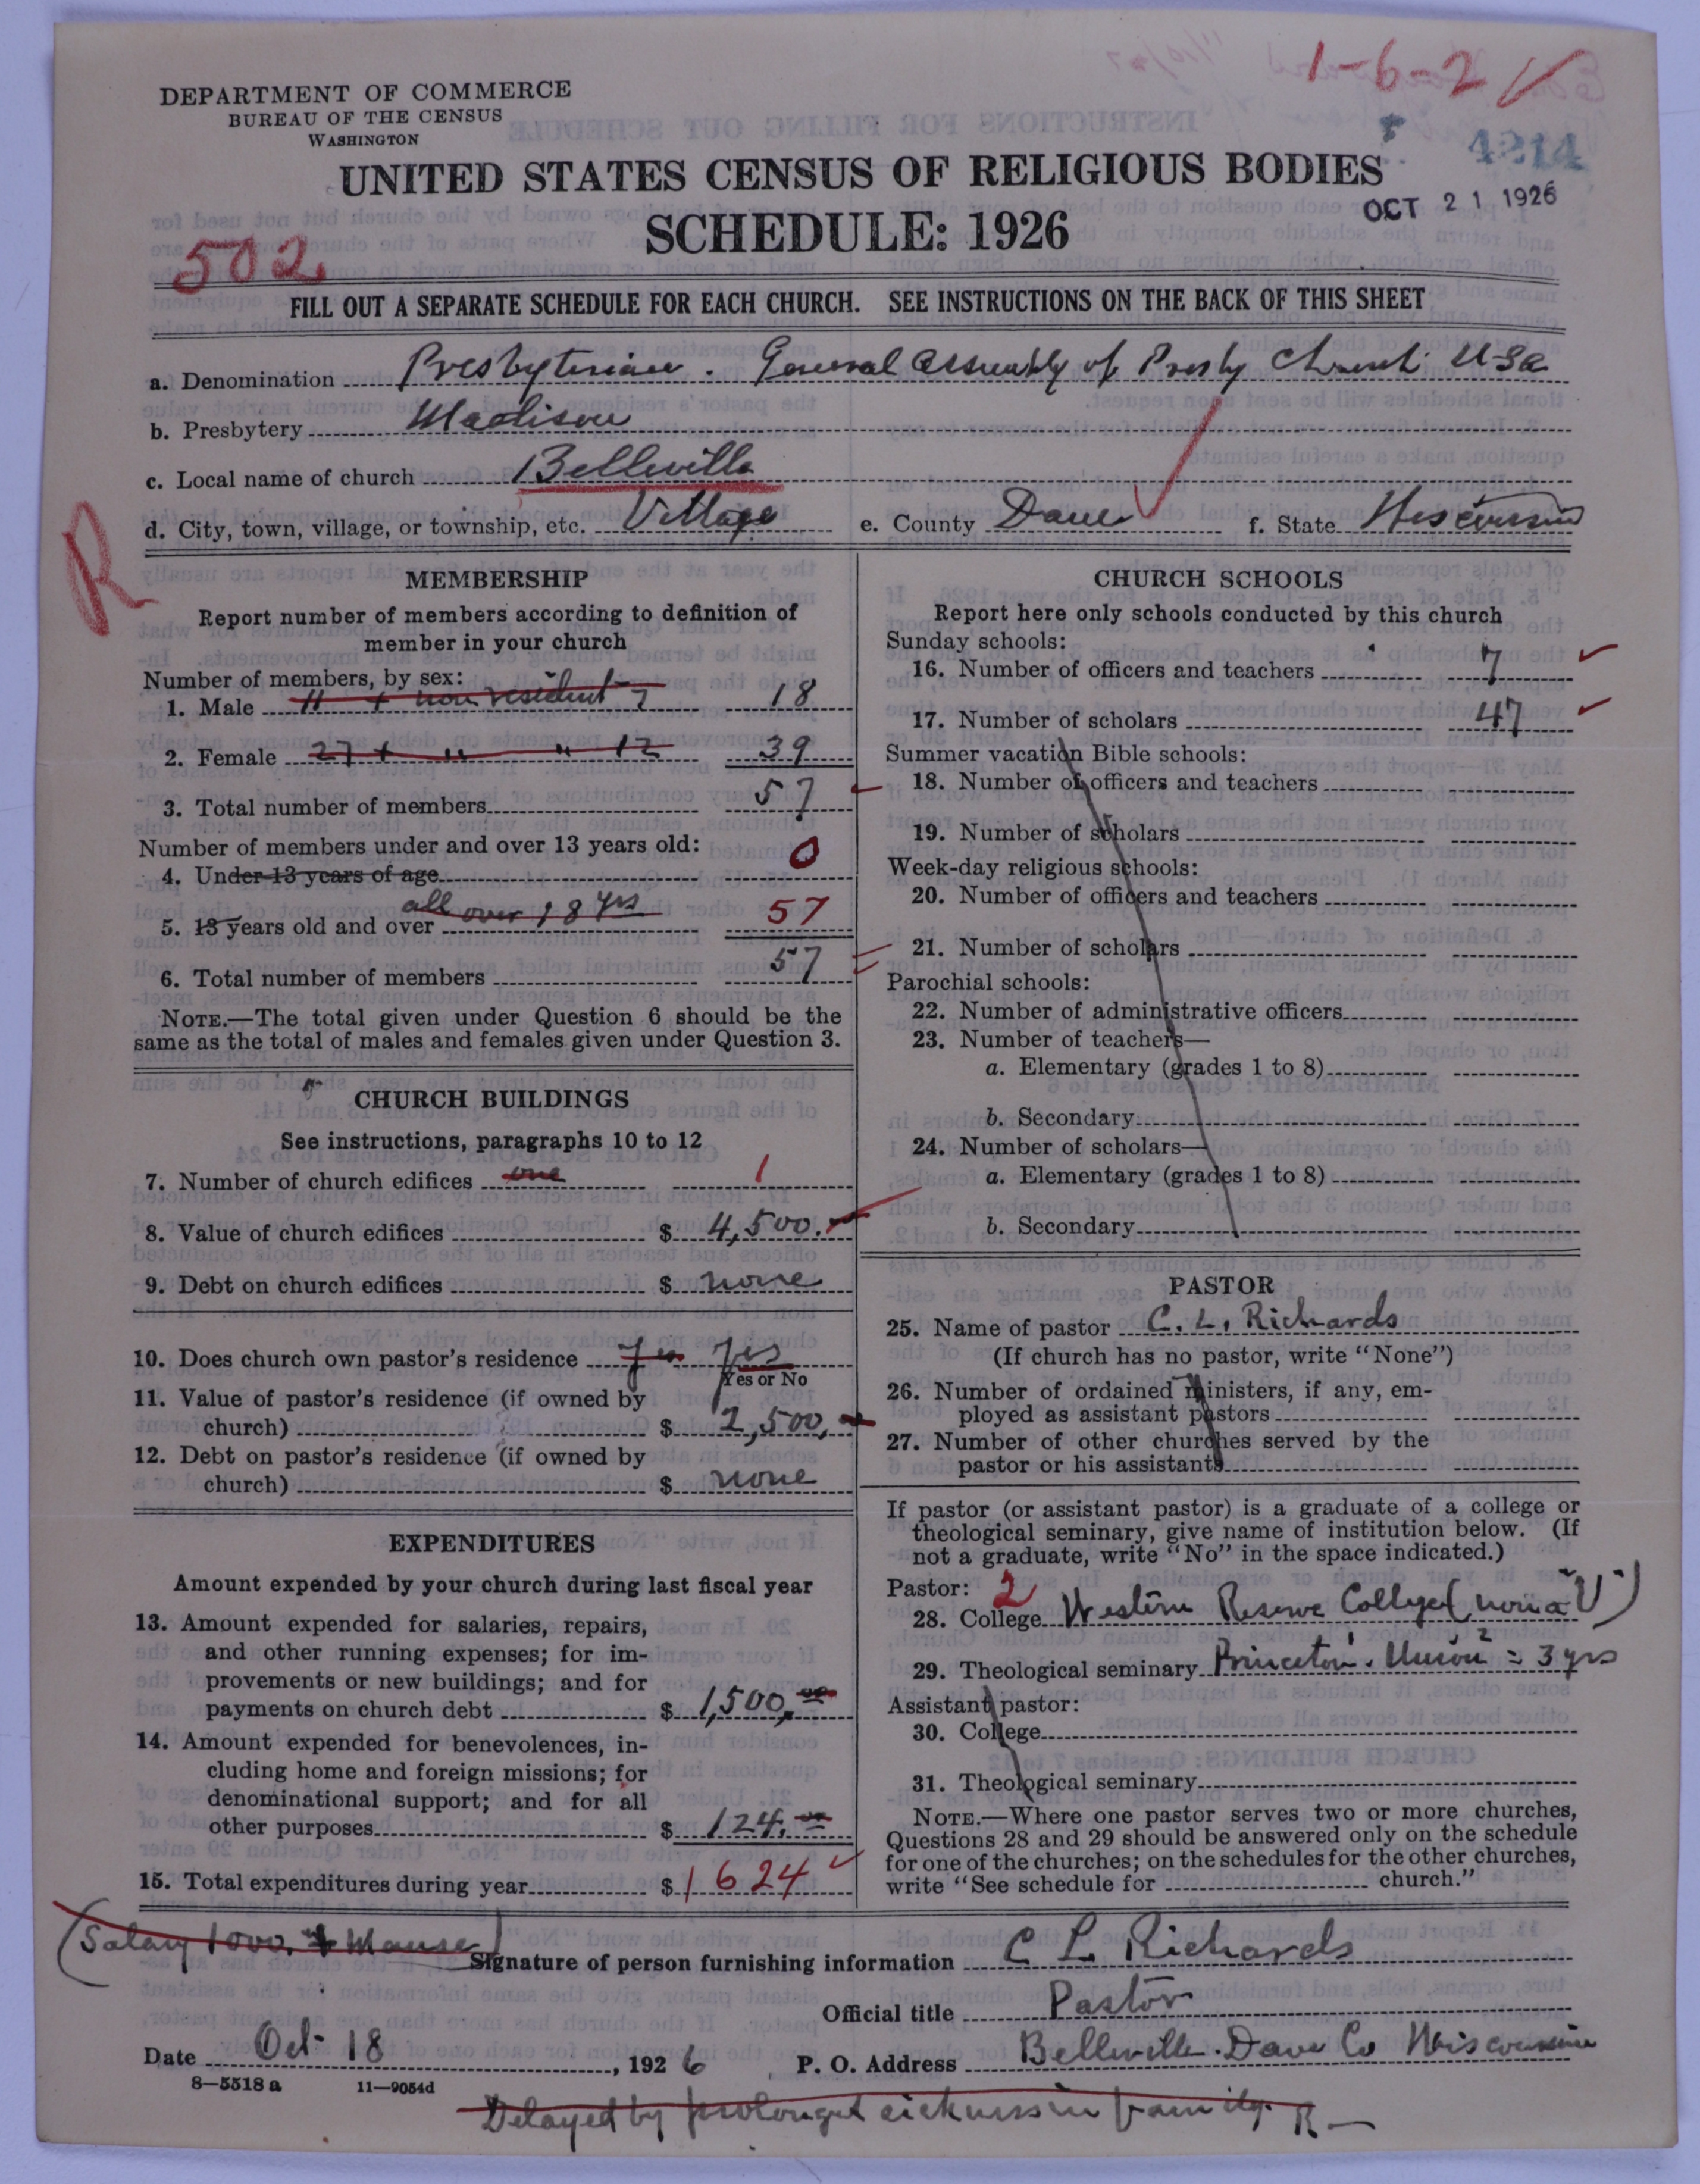 1-6-2
DEPARTMENT OF COMMERCE
BUREAU OF THE CENSUS
WASHINGTON
4214
UNITED STATES CENSUS OF RELIGIOUS BODIES
OCT 21 1926
SCHEDULE: 1926
502
FILL OUT A SEPARATE SCHEDULE FOR EACH CHURCH. SEE INSTRUCTIONS ON THE BACK OF THIS SHEET
a. Denomination Presbyterian. General Assembly of Presby Church USA
b. Presbytery Madison
c. Local name of church Belleville
d. City, town, village, or township, etc. Village e. County Dane f. State Wisconsin
R
MEMBERSHIP
Report number of members according to definition of
member in your church
Number of members, by sex:
1. Male 11 + non resident 7 18
2. Female 27 + " " 12 39
3. Total number of members 57
Number of members under and over 13 years old:
4. Under 13 years of age 0
all over 18 yrs
5. 13 years old and over 57
6. Total number of members 57
NOTE.—The total given under Question 6 should be the
same as the total of males and females given under Question 3.
CHURCH BUILDINGS
See instructions, paragraphs 10 to 12
7. Number of church edifices one 1
8. Value of church edifices $ 4,500.
9. Debt on church edifices $ none
10. Does church own pastor's residence Yes Yes
Yes or No
11. Value of pastor's residence (if owned by
church) $ 2,500,
12. Debt on pastor's residence (if owned by
church) $ none
EXPENDITURES
Amount expended by your church during last fiscal year
13. Amount expended for salaries, repairs,
and other running expenses; for im-
provements or new buildings; and for
payments on church debt $ 1,500,00
14. Amount expended for benevolences, in-
cluding home and foreign missions; for
denominational support; and for all
other purposes $ 124.00
15. Total expenditures during year $ 1624
CHURCH SCHOOLS
Report here only schools conducted by this church
Sunday schools:
16. Number of officers and teachers 7
17. Number of scholars 47
Summer vacation Bible schools:
18. Number of officers and teachers
19. Number of scholars
Week-day religious schools:
20. Number of officers and teachers
21. Number of scholars
Parochial schools:
22. Number of administrative officers
23. Number of teachers—
a. Elementary (grades 1 to 8)
b. Secondary
24. Number of scholars—
a. Elementary (grades 1 to 8)
b. Secondary
PASTOR
25. Name of pastor C. L. Richards
(If church has no pastor, write "None")
26. Number of ordained ministers, if any, em-
ployed as assistant pastors
27. Number of other churches served by the
pastor or his assistants
If pastor (or assistant pastor) is a graduate of a college or
theological seminary, give name of institution below. (If
not a graduate, write "No" in the space indicated.)
Pastor: 2
28. College Western Reserve College (now a "U")
29. Theological seminary Princeton 1. Union 2 = 3 yrs
Assistant pastor:
30. College
31. Theological seminary
NOTE.—Where one pastor serves two or more churches,
Questions 28 and 29 should be answered only on the schedule
for one of the churches; on the schedules for the other churches,
write "See schedule for church."
(Salary 1000. + Manse)
Signature of person furnishing information C L Richards
Official title Pastor
Date Oct 18, 1926 P. O. Address Belleville. Dane Co Wisconsin
8—5518 a 11—9054d
Delayed by prolonged sickness in family. R—